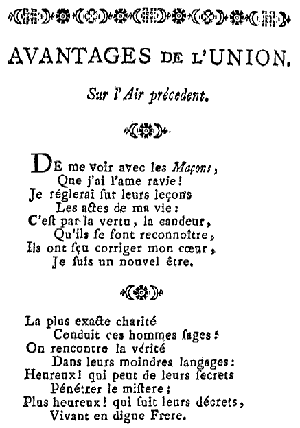 AVANTAGES DE L'UNION.
Sur l'Air précedent.
DE me voir avec les Maçons,
Que j'ai l'ame ravie!
Je réglerai ſur leurs leçons
Les actes de ma vie:
C'eſt par la vertu, la candeur,
Qu'ils ſe font reconnoître,
Ils ont ſçu corriger mon cœur,
Je ſuis un nouvel être.
La plus exacte charité
Conduit ces hommes ſages:
On rencontre la vérité
Dans leurs moindres langages:
Heureux! qui peut de leurs ſecrets
Pénétrer le miſtere;
Plus heureux! qui ſuit leurs décrets,
Vivant en digne Frere.